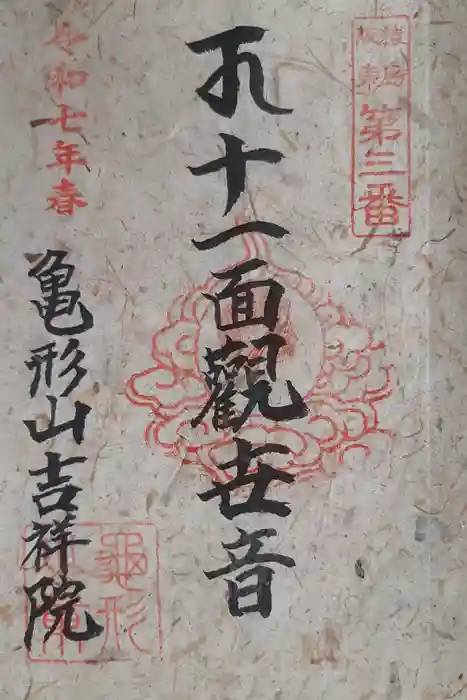 第三番
十一面觀世音
令和七年春
亀形山吉祥院
龜形